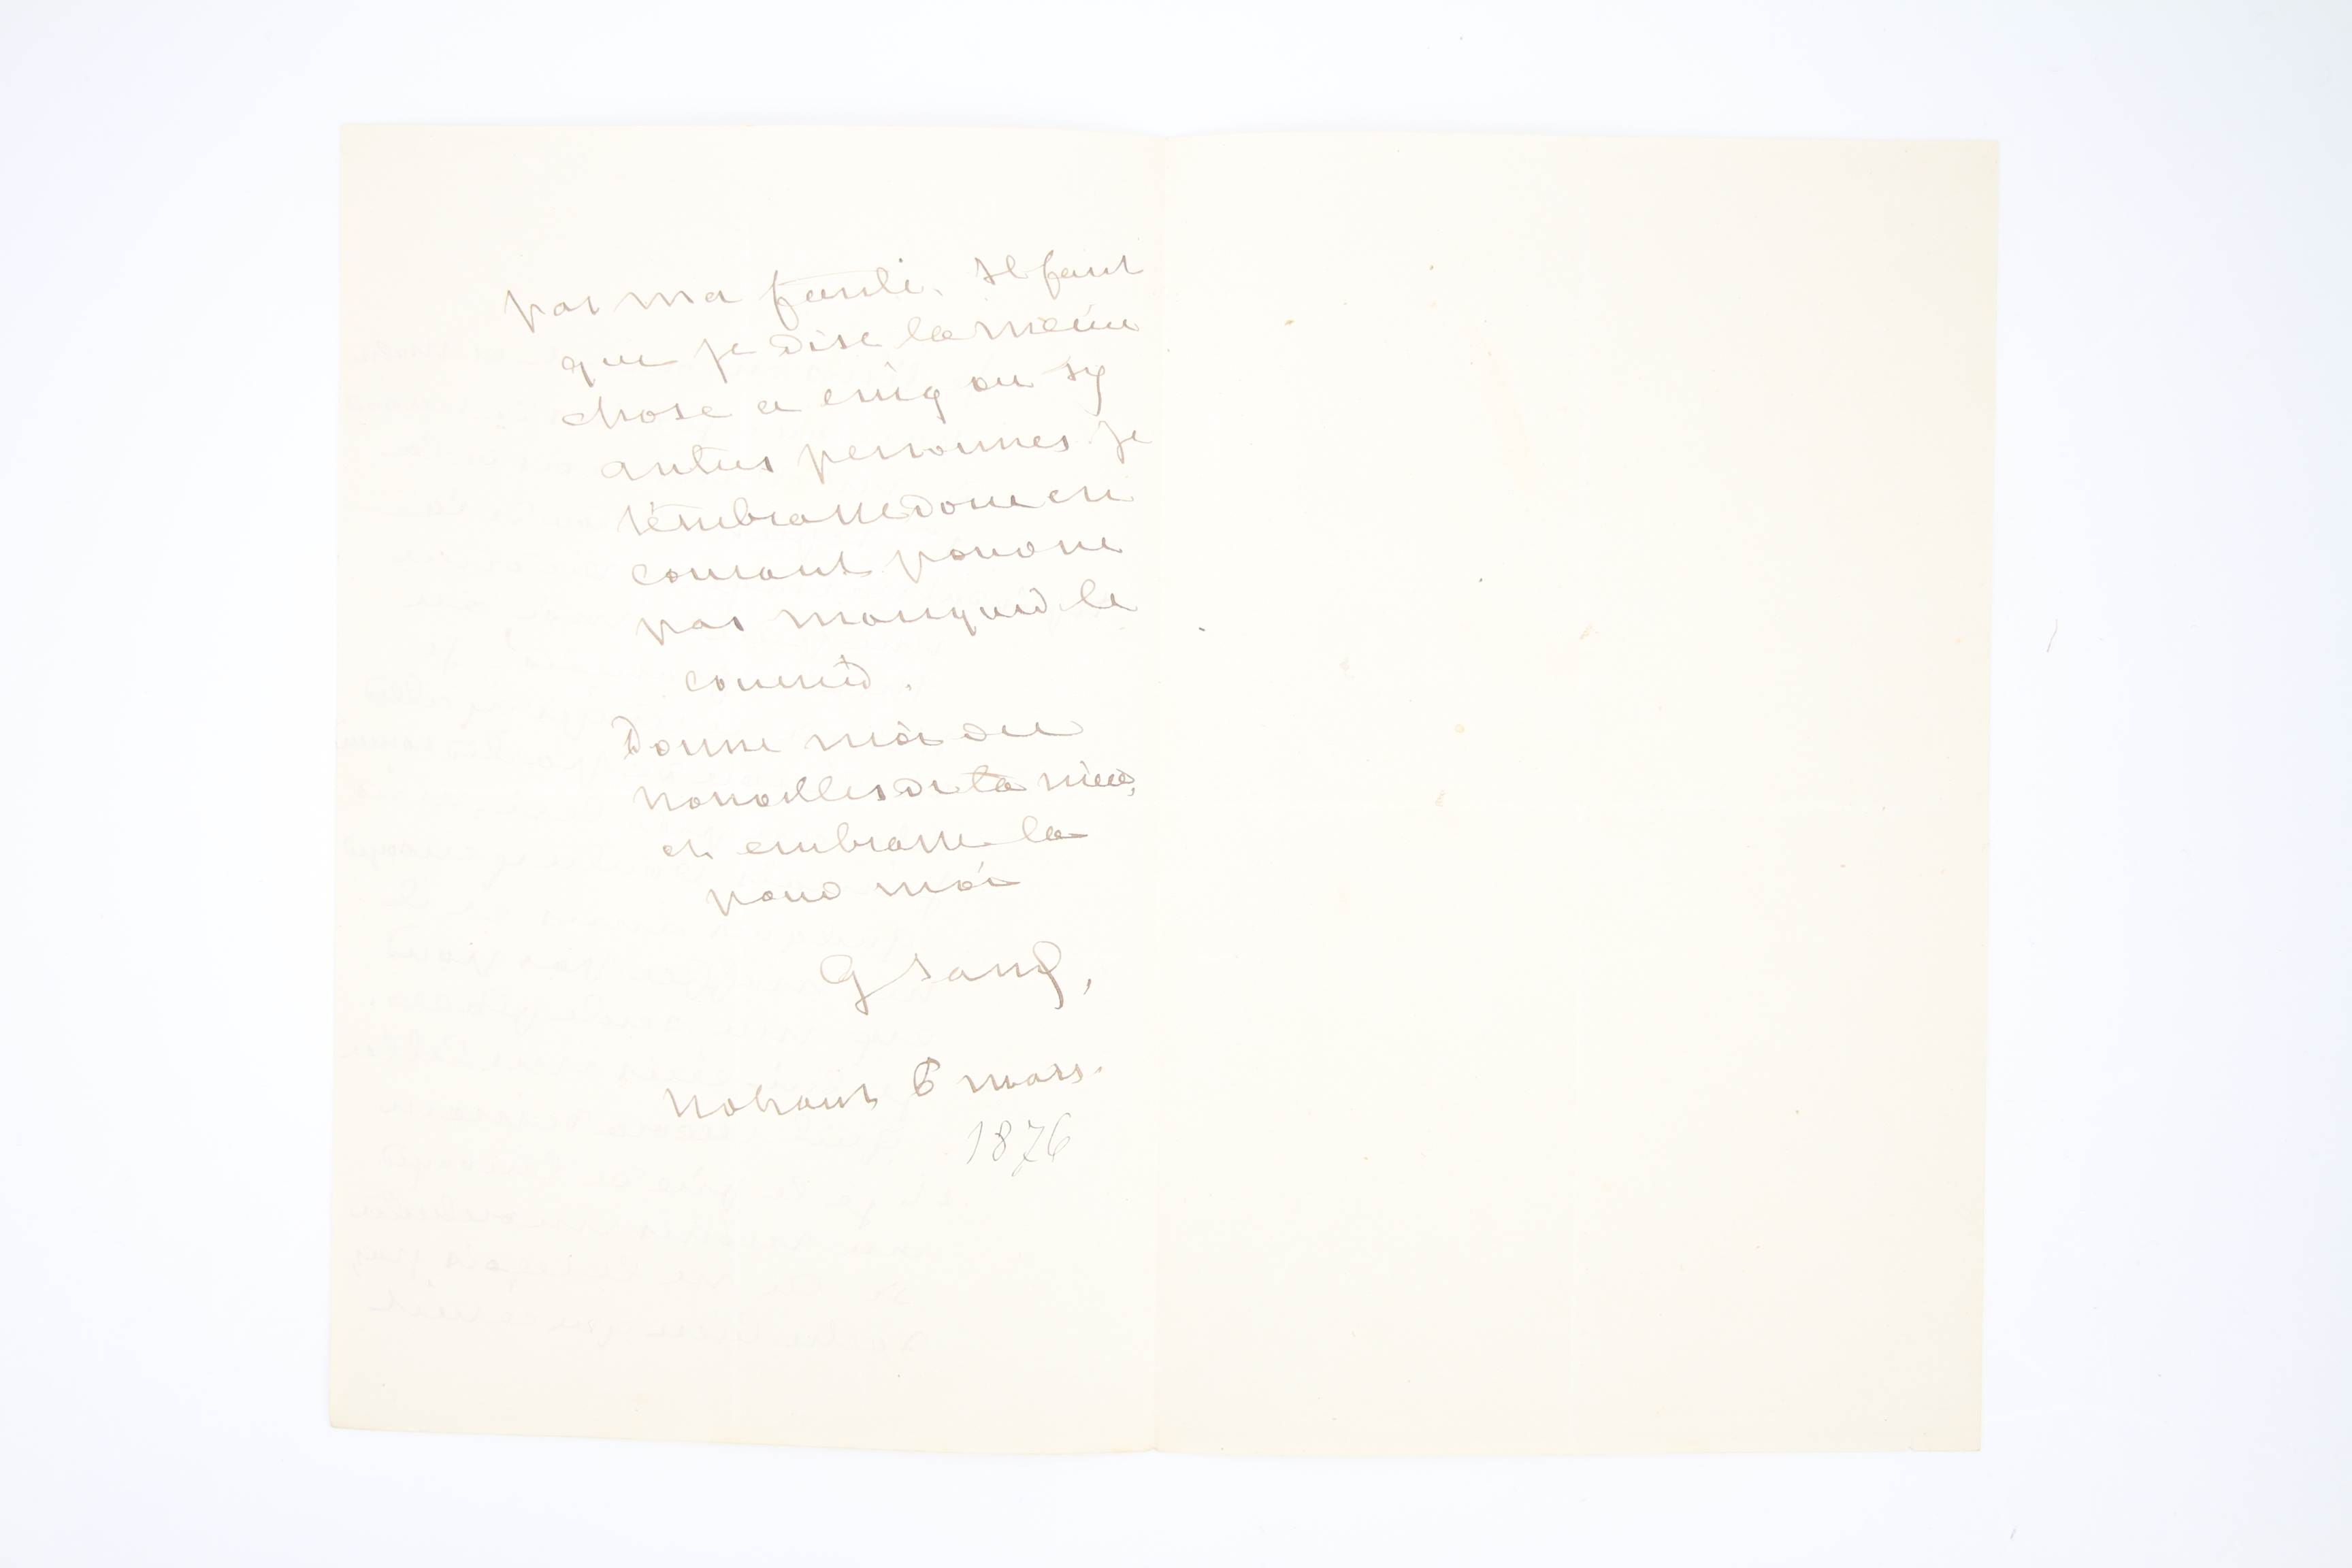 pas ma faute. Il faut
que je dise la même
chose a cinq ou six
autres personnes. Je
t'embrasse donc en
courant pour ne
pas manquer le
courrier.
Donne moi des
nouvelles de ta mère,
et embrasse la
pour moi
G Sand,
Nohant 6 mars.
1876